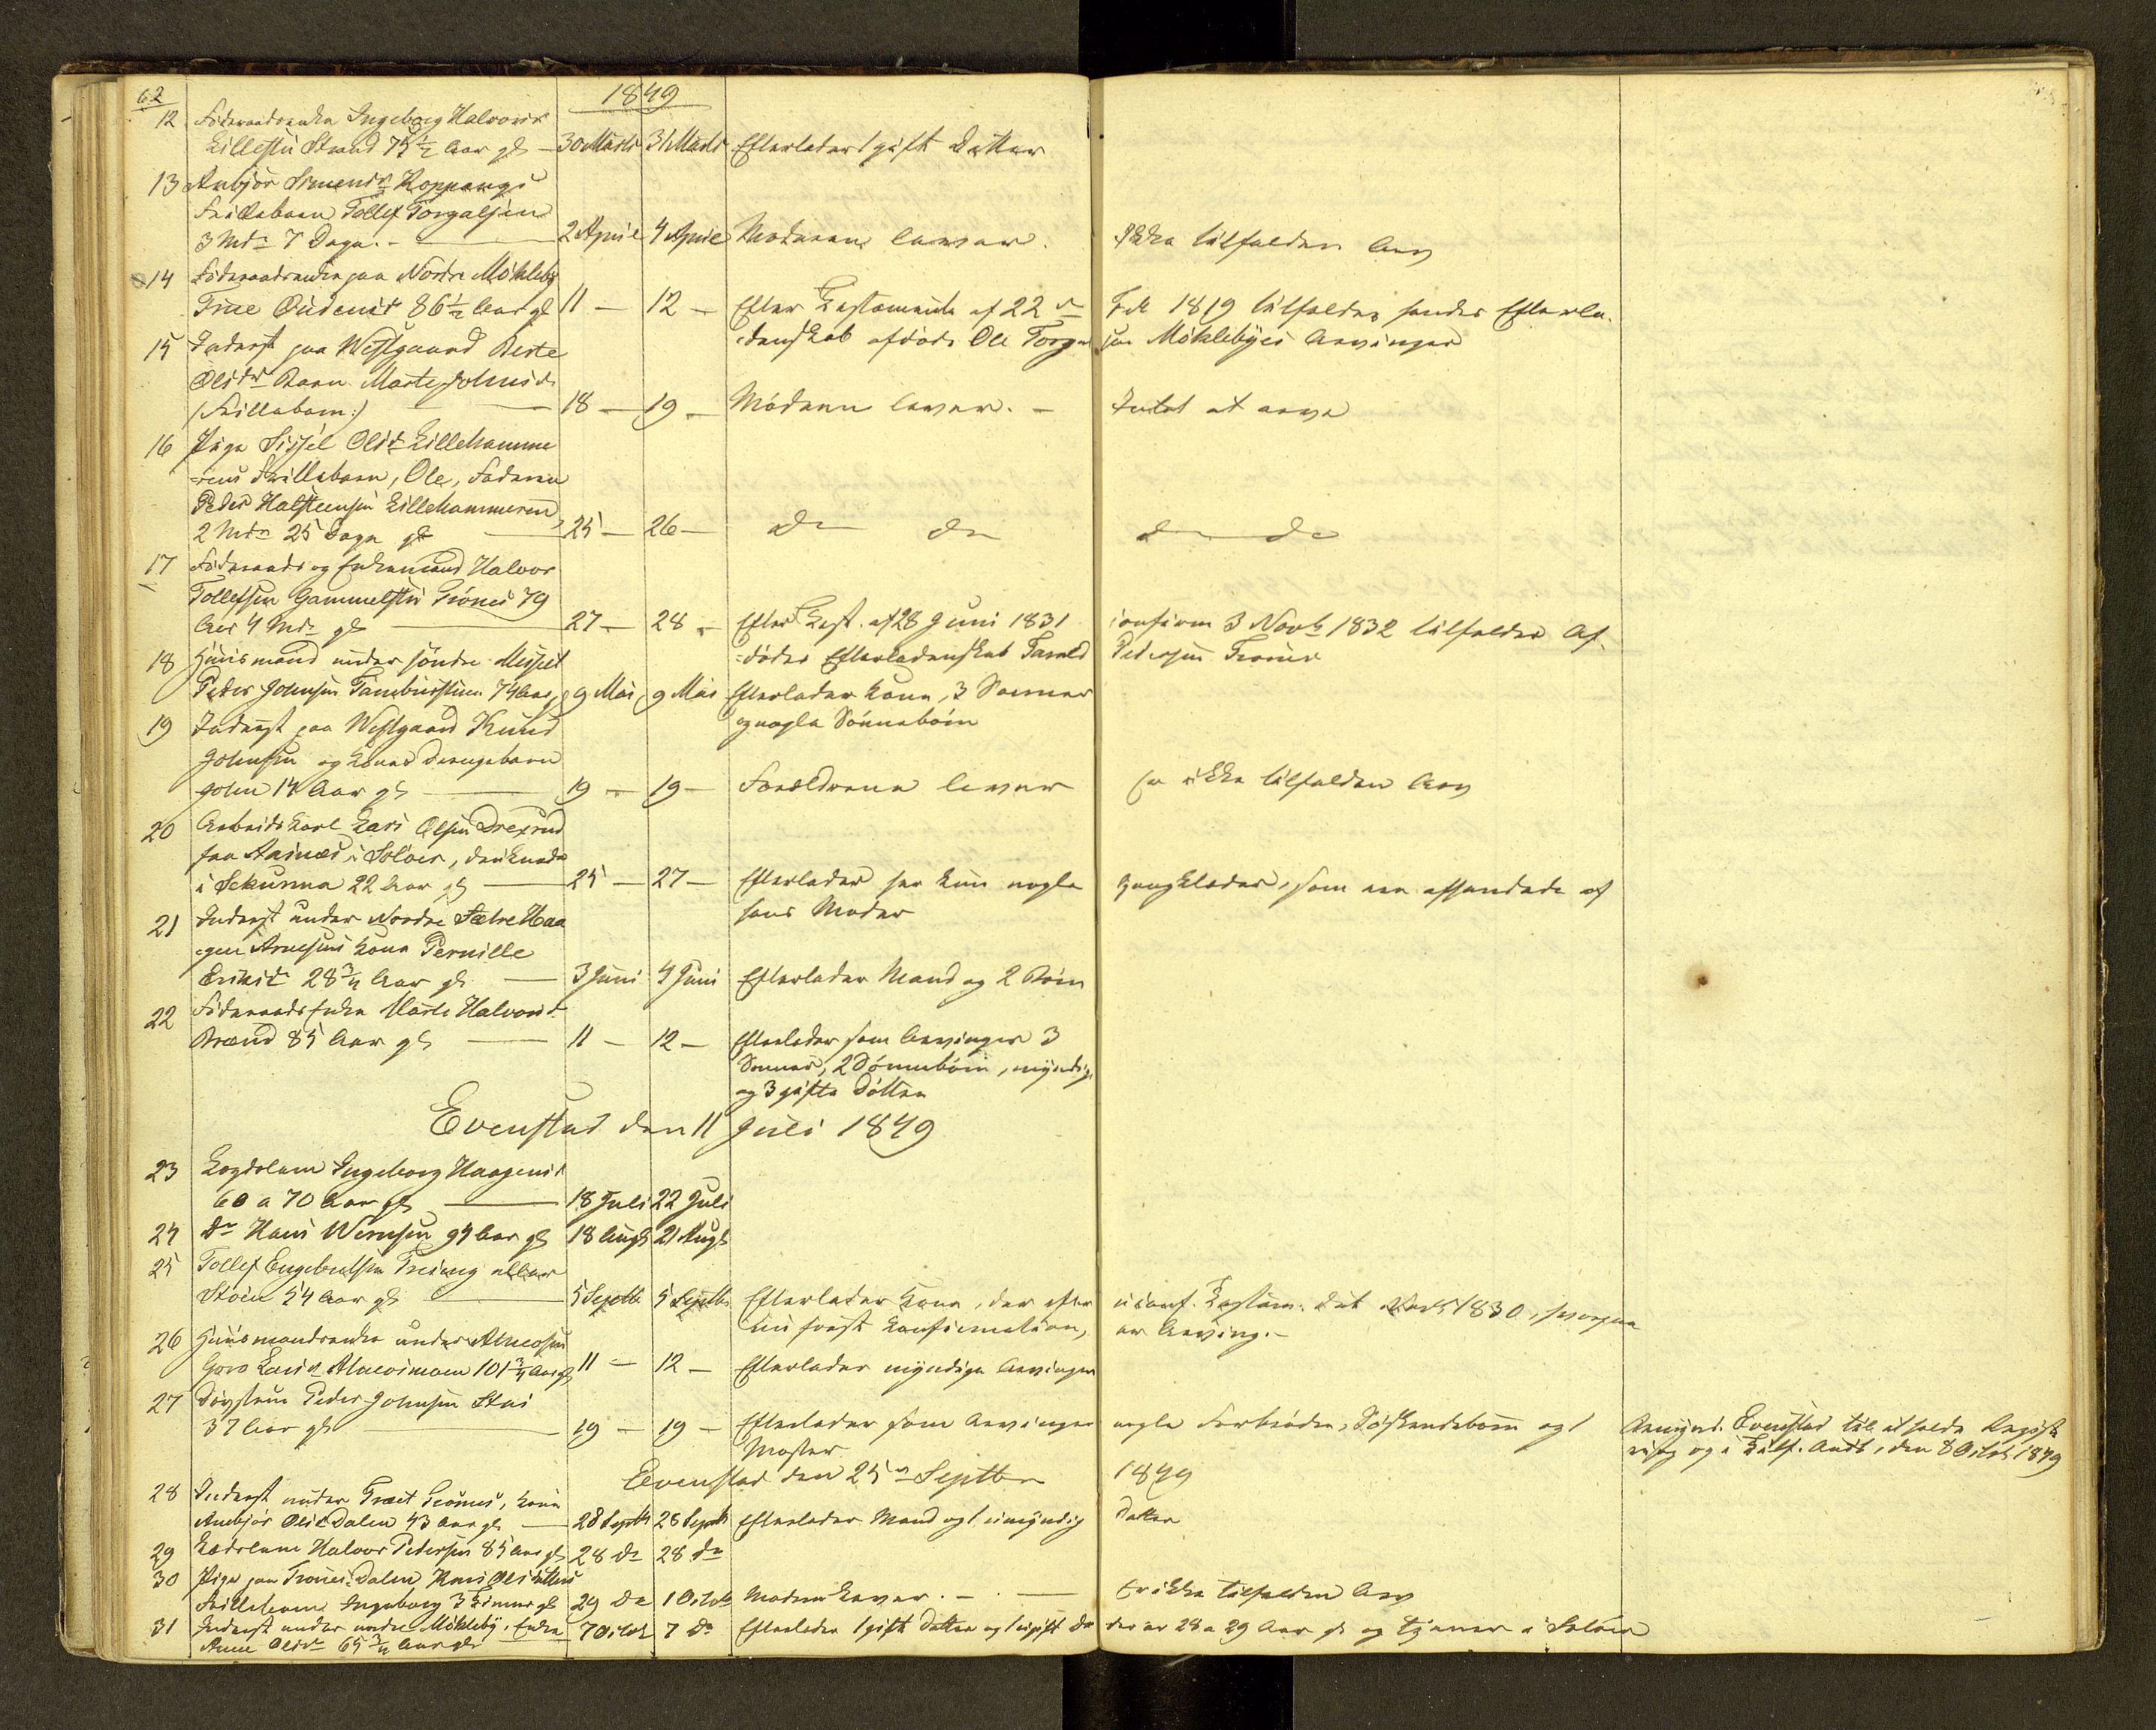 62
1849
12 Föderaadsenke Ingeborg Halvorsd
Lillestu Strand 75 1/2 Aar gl — 30 Marts 31 Marts Efterlader 1 gift Datter
13 Anbjør Simensd Koppangs
Frillebarn Tollef Torgalsen
3 Mdr 7 Dage. — 2 April 4 April Moderen lever. Ikke tilfalden Arv
14 Föderaadsenke paa Nordre Mökleby
Trine Oudensd 86 1/2 Aar gl 11 — 12 — Efter Testamente af 22de Feb 1819 tilfalder hendes Efterla-
denskab afdöde Ole Torger sen Möklebyes Arvinger
15 Inderst paa Westgaard Berte
Olsdr Barn Marte Johnsd
(Frillebarn:) — 18 — 19 — Moderen lever. — Intet at arve
16 Pige Sissel Olsd Lillehamme
rens Frillebarn, Ole, Faderen
Peder Halsteensen Lillehammeren
2 Mdr 25 Dage gl — 25 — 26 — do do do do
17 Föderaads og Enkemand Halvor
Tollefsen Gammelstu Trönes 79
Aar 4 Mdr gl — 27 — 28 — Efter Test. af 28 Juni 1831 confirm 3 Novb 1832 tilfalder Af-
dödes Efterladenskab Tarald Pedersen Trones
18 Huusmand under söndre Messelt
Peder Johnsen Tamburstuen 74 Aar gl 9 Mai 9 Mai Efterlader Kone, 3 Sønner
og nogle Sönnebörn
19 Inderst paa Westgaard Knud
Johnsen og Kones Drengebarn
John 14 Aar gl — 19 — 19 — Forældrene lever Er ikke tilfalden Arv
20 Arbeidskarl Lars Olsen Drexrud
fra Aasnæs i Solöer, druknede
i Sckurna 22 Aar gl — 25 — 27 — Efterlader her kun nogle Gangklæder, som ere afsendede af
hans Moder
21 Inderst under Nordre Sætre Haa
gen Arnesens Kone Pernille
Eriksd 28 3/4 Aar gl — 3 Juni 4 Juni Efterlader Mand og 2 Börn
22 Föderaadsenke Marte Halvorsd
Brænd 85 Aar gl — 11 — 12 — Efterlader som Arvinger 3
Sönner, 2 Sönnebörn, myndige
og 3 gifte Döttre
Evenstad den 11 Juli 1849
23 Lægdslem Ingeborg Haagensd
60 a 70 Aar gl — 18 Juli 22 Juli
24 Do Hans Wernsen 94 Aar gl 18 Augt 21 Augt
25 Tollef Engebretsen Treung eller
Stöen 54 Aar gl — 5 Septb 5 Septb Efterlader Kone, der efter uconf. Testam. dat 1830,
er Arving. —
26 Huusmandsenke under Atneosen
Goro Larsd Atneosmoen 101 3/4 Aar gl 11 — 12 — Efterlader myndige Arvinger
27 Døvstum Peder Johnsen Stai
37 Aar gl — 19 — 19 — Efterlader som Arvinger nogle Farbrödre, Söskendebørn og 1
Moster
Anmeld. Evenstad til at holde Regist
og i Tilf. Auct, den 8 Octob 1849
Evenstad den 25de Septbr 1849
28 Inderst under Træet Trönnes, Kone
Anbjør Olsd Dalen 43 Aar gl — 28 Septb 28 Septb Efterlader Mand og 1 umyndig Datter
29 Lægdslem Halvor Pedersen 85 Aar gl 28 do 28 do
30 Pige paa Trones Dalen Kari Olsdatters
Frillebarn Ingeborg 3 Timer gl 29 do 1 Octob Moderen Lever. — Er ikke tilfalden Arv
31 Inderst under nordre Möklebÿ, Enke
Anne Olsdr 65 3/4 Aar gl 7 Octob 7 do Efterlader 1 gift Datter og 1 ugift do der er 28 a 29 Aar gl og tjener i Solöer